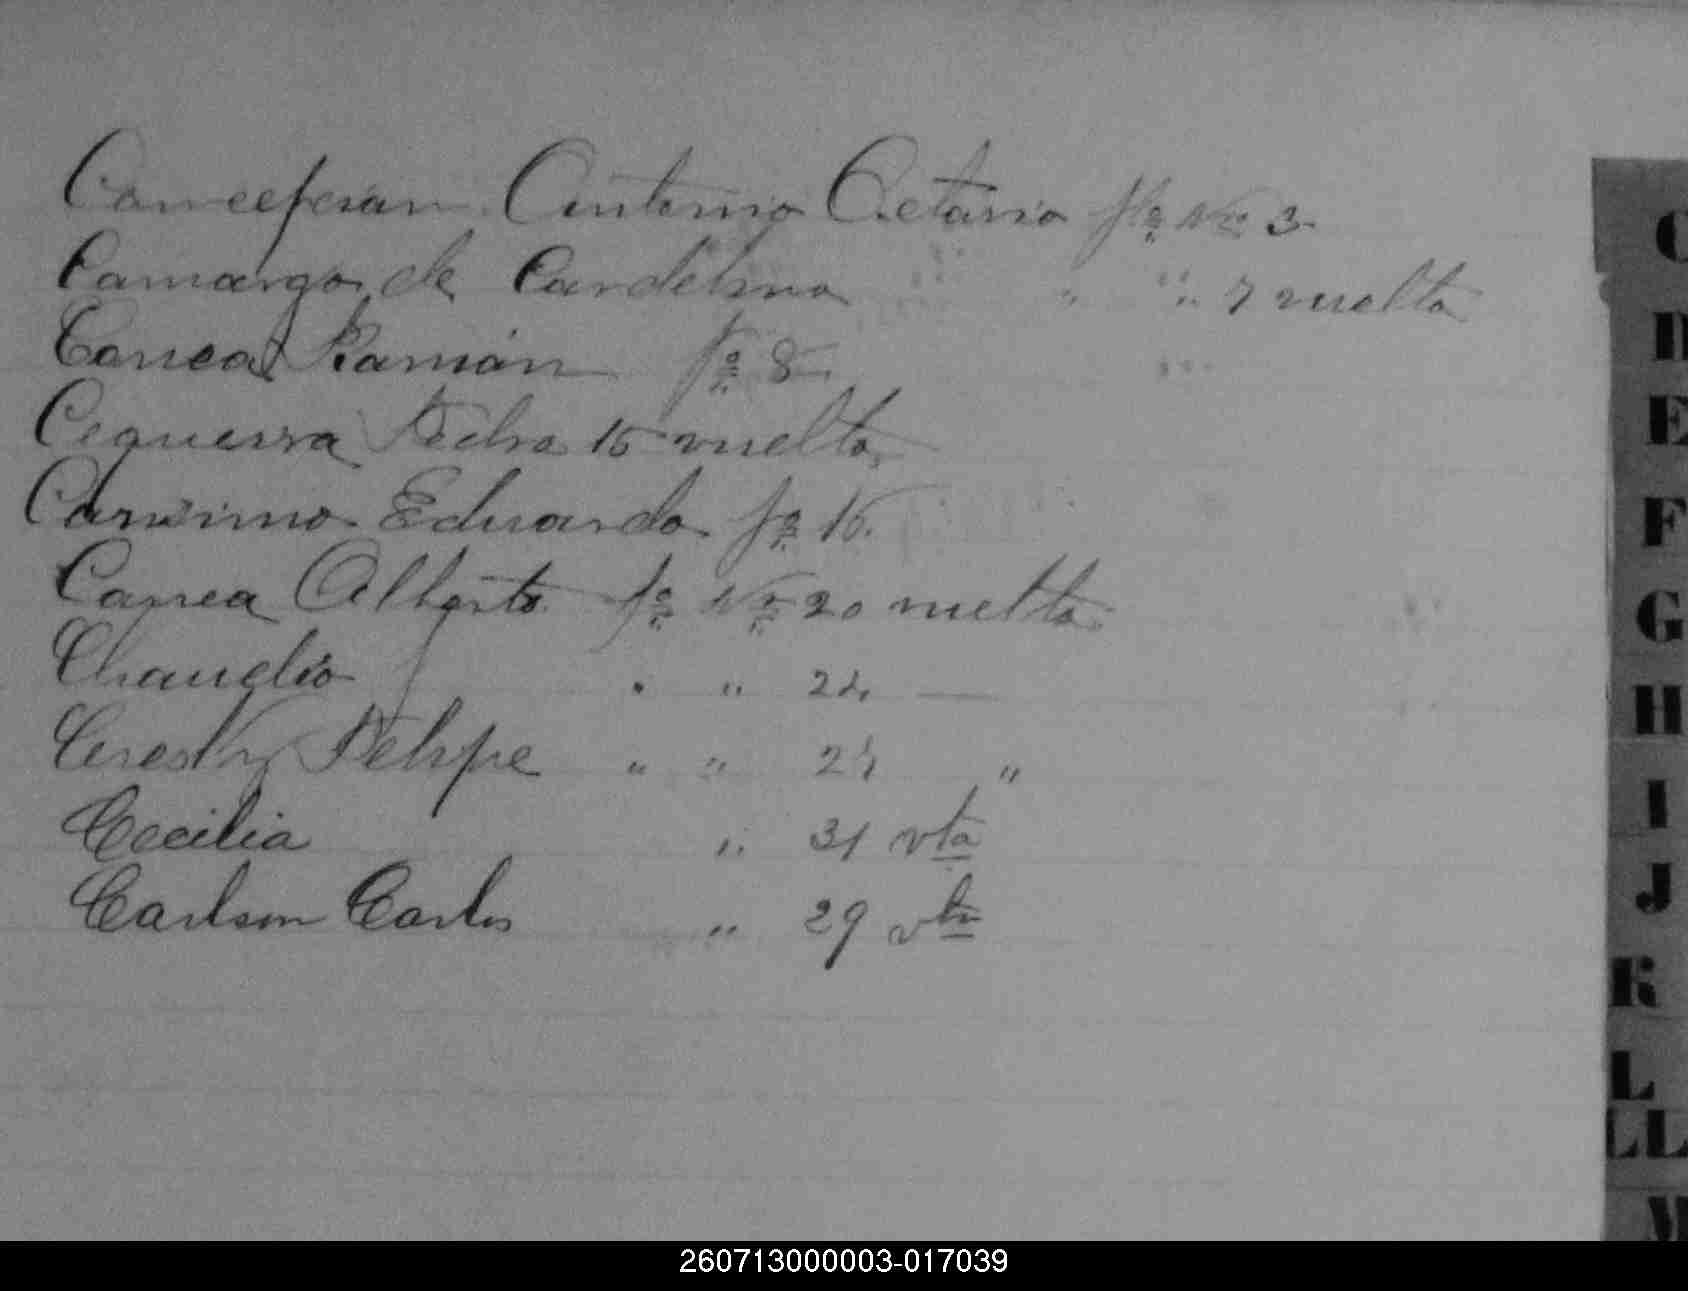 Concepcion Antonio Octavio flo No 3
Camargo de Candelina " " 7 vuelta
Correa Ramón fo 8
Cequeira Pedro 15 vuelta
Carísimo Eduardo fo 16.
Correa Alberto fo No 20 vuelta
Claudio " " 24
Felipe " " 27 "
Cecilia " 31 vta
Carlson Carlos " 29 vta
C
D
E
F
G
H
I
J
K
L
LL
M
260713000003-017039